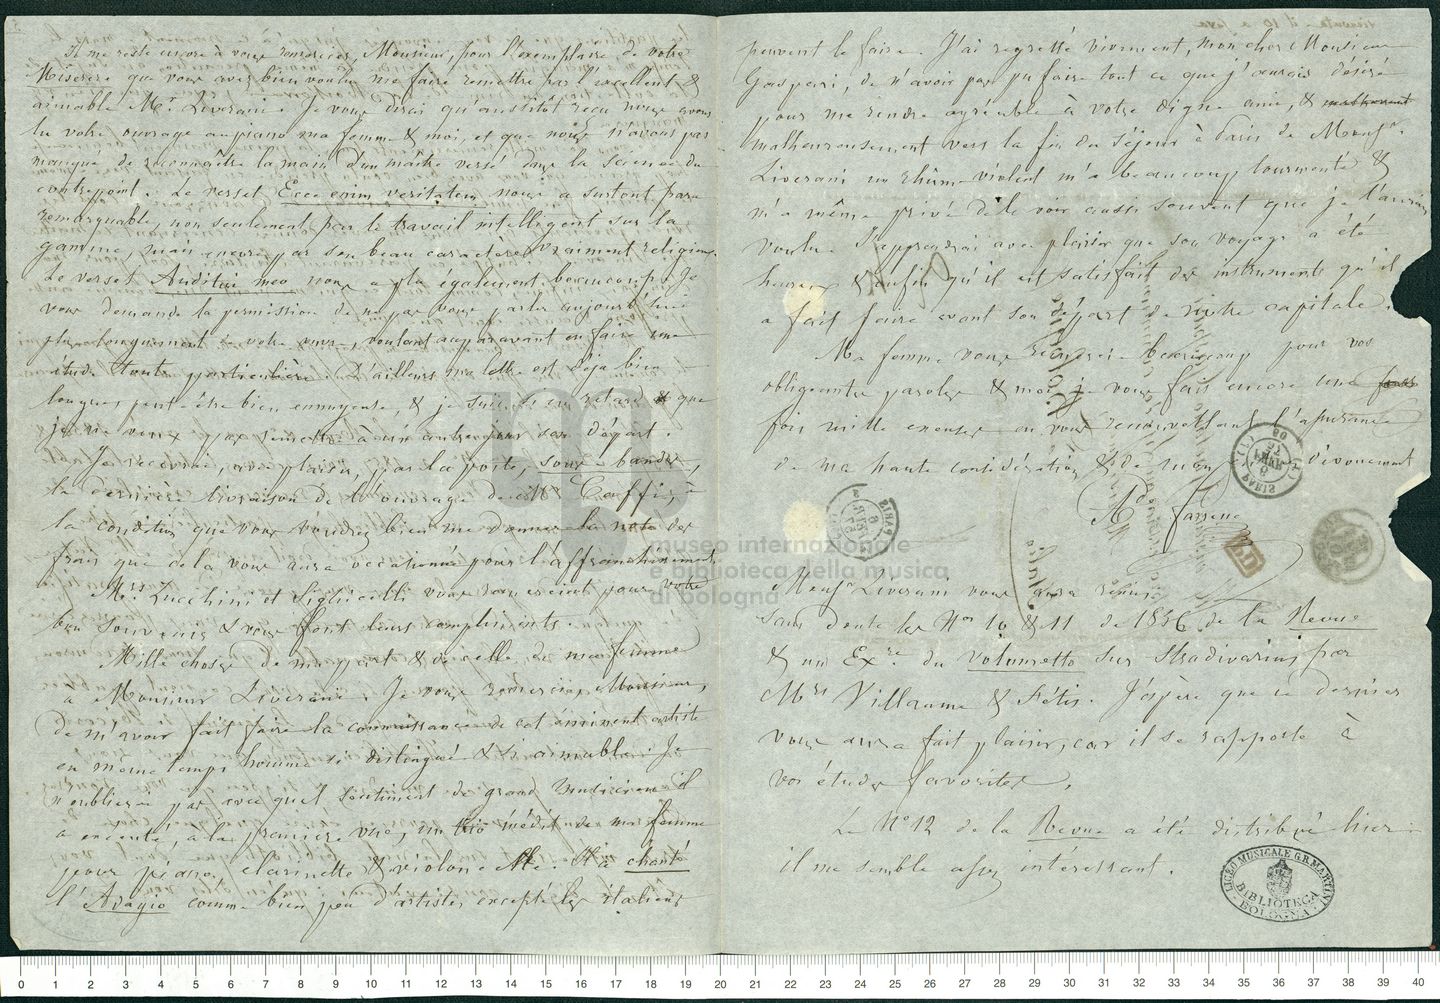 Il me reste encore à vous remercier, Monsieur, pour l'exemplaire de votre
Miserere que vous avez bien voulu me faire remettre par l'excellent &
aimable Mr. Liverani. Je vous dirai qu'aussitôt reçu nous avons
lu votre ouvrage au piano ma femme & moi, et que nous n'avons pas
manqué de reconnaître la main d'un maître versé dans la science du
contrepoint. Le verset Ecce enim veritatem nous a surtout paru
remarquable, non seulement par le travail intelligent sur la
gamme, mais encore par son beau caractère vraiment religieux
Le verset Auditui meo nous a plu également beaucoup. Je
vous demande la permission de ne pas vous parler aujourd'hui
plus longuement de votre œuvre, voulant auparavant en faire une
étude toute particulière. D'ailleurs ma lettre est déjà bien
longue, peut-être bien ennuyeuse, & je suis en retard & que
je ne veux pas remettre à un autre jour son départ.
Je recevrai, avec plaisir, par la poste, sous bandes,
la dernière livraison de l'ouvrage de Mr Catuffi, à
la condition que vous voudrez bien me donner la note des
frais que cela vous aura occasionné pour l'affranchissement
Mrs Zucchini et Sighicelli vous remercient pour votre
bon souvenir & vous font leurs compliments.
Mille choses de ma part & de celle de ma femme
à Monsieur Liverani. Je vous remercie, Monsieur,
de m'avoir fait faire la connaissance de cet éminent artiste
en même temps homme si distingué & si aimable. Je
n'oublierai pas avec quel sentiment de grand musicien il
a exécuté, à la première vue, un trio inédit de ma femme
pour piano, clarinette & violoncelle. Il a chanté
l'Adagio comme bien peu d'artistes excepté les italiens
peuvent le faire. J'ai regretté vivement, mon cher Monsieur
Gaspari, de n'avoir pas pu faire tout ce que j'aurais désiré
pour me rendre agréable à votre digne ami, & malheureut
malheureusement vers la fin du séjour à Paris de Monsr.
Liverani un rhûme violent m'a beaucoup tourmenté &
m'a même privé de le voir aussi souvent que je l'aurais
voulu. J'apprendrai avec plaisir que son voyage a été
heureux & enfin qu'il est satisfait des instruments qu'il
a fait faire avant son départ de notre capitale.
Ma femme vous remercie beaucoup pour vos
obligeantes paroles & moi je vous fais encore une fois
fois mille excuses en vous renouvelant l'assurance
de ma haute considération & de mon dévouement
Ade Farrenc
Monsr Liverani vous aura remis
sans doute les Nos 10 & 11 de 1856 de la Revue
& un Exre. du volumetto sur Stradivarius, par
Mrs Villaume & Fétis. J'espère que ce dernier
vous aura fait plaisir, car il se rapporte à
vos études favorites.
Le No 12 de la Revue a été distribué hier
il me semble assez intéressant.
PARIS
PARIS
PD
LICEO MUSICALE G.B. MARTINI
BIBLIOTECA
BOLOGNA
museo internazionale
e biblioteca della musica
di bologna
0 1 2 3 4 5 6 7 8 9 10 11 12 13 14 15 16 17 18 19 20 21 22 23 24 25 26 27 28 29 30 31 32 33 34 35 36 37 38 39 40